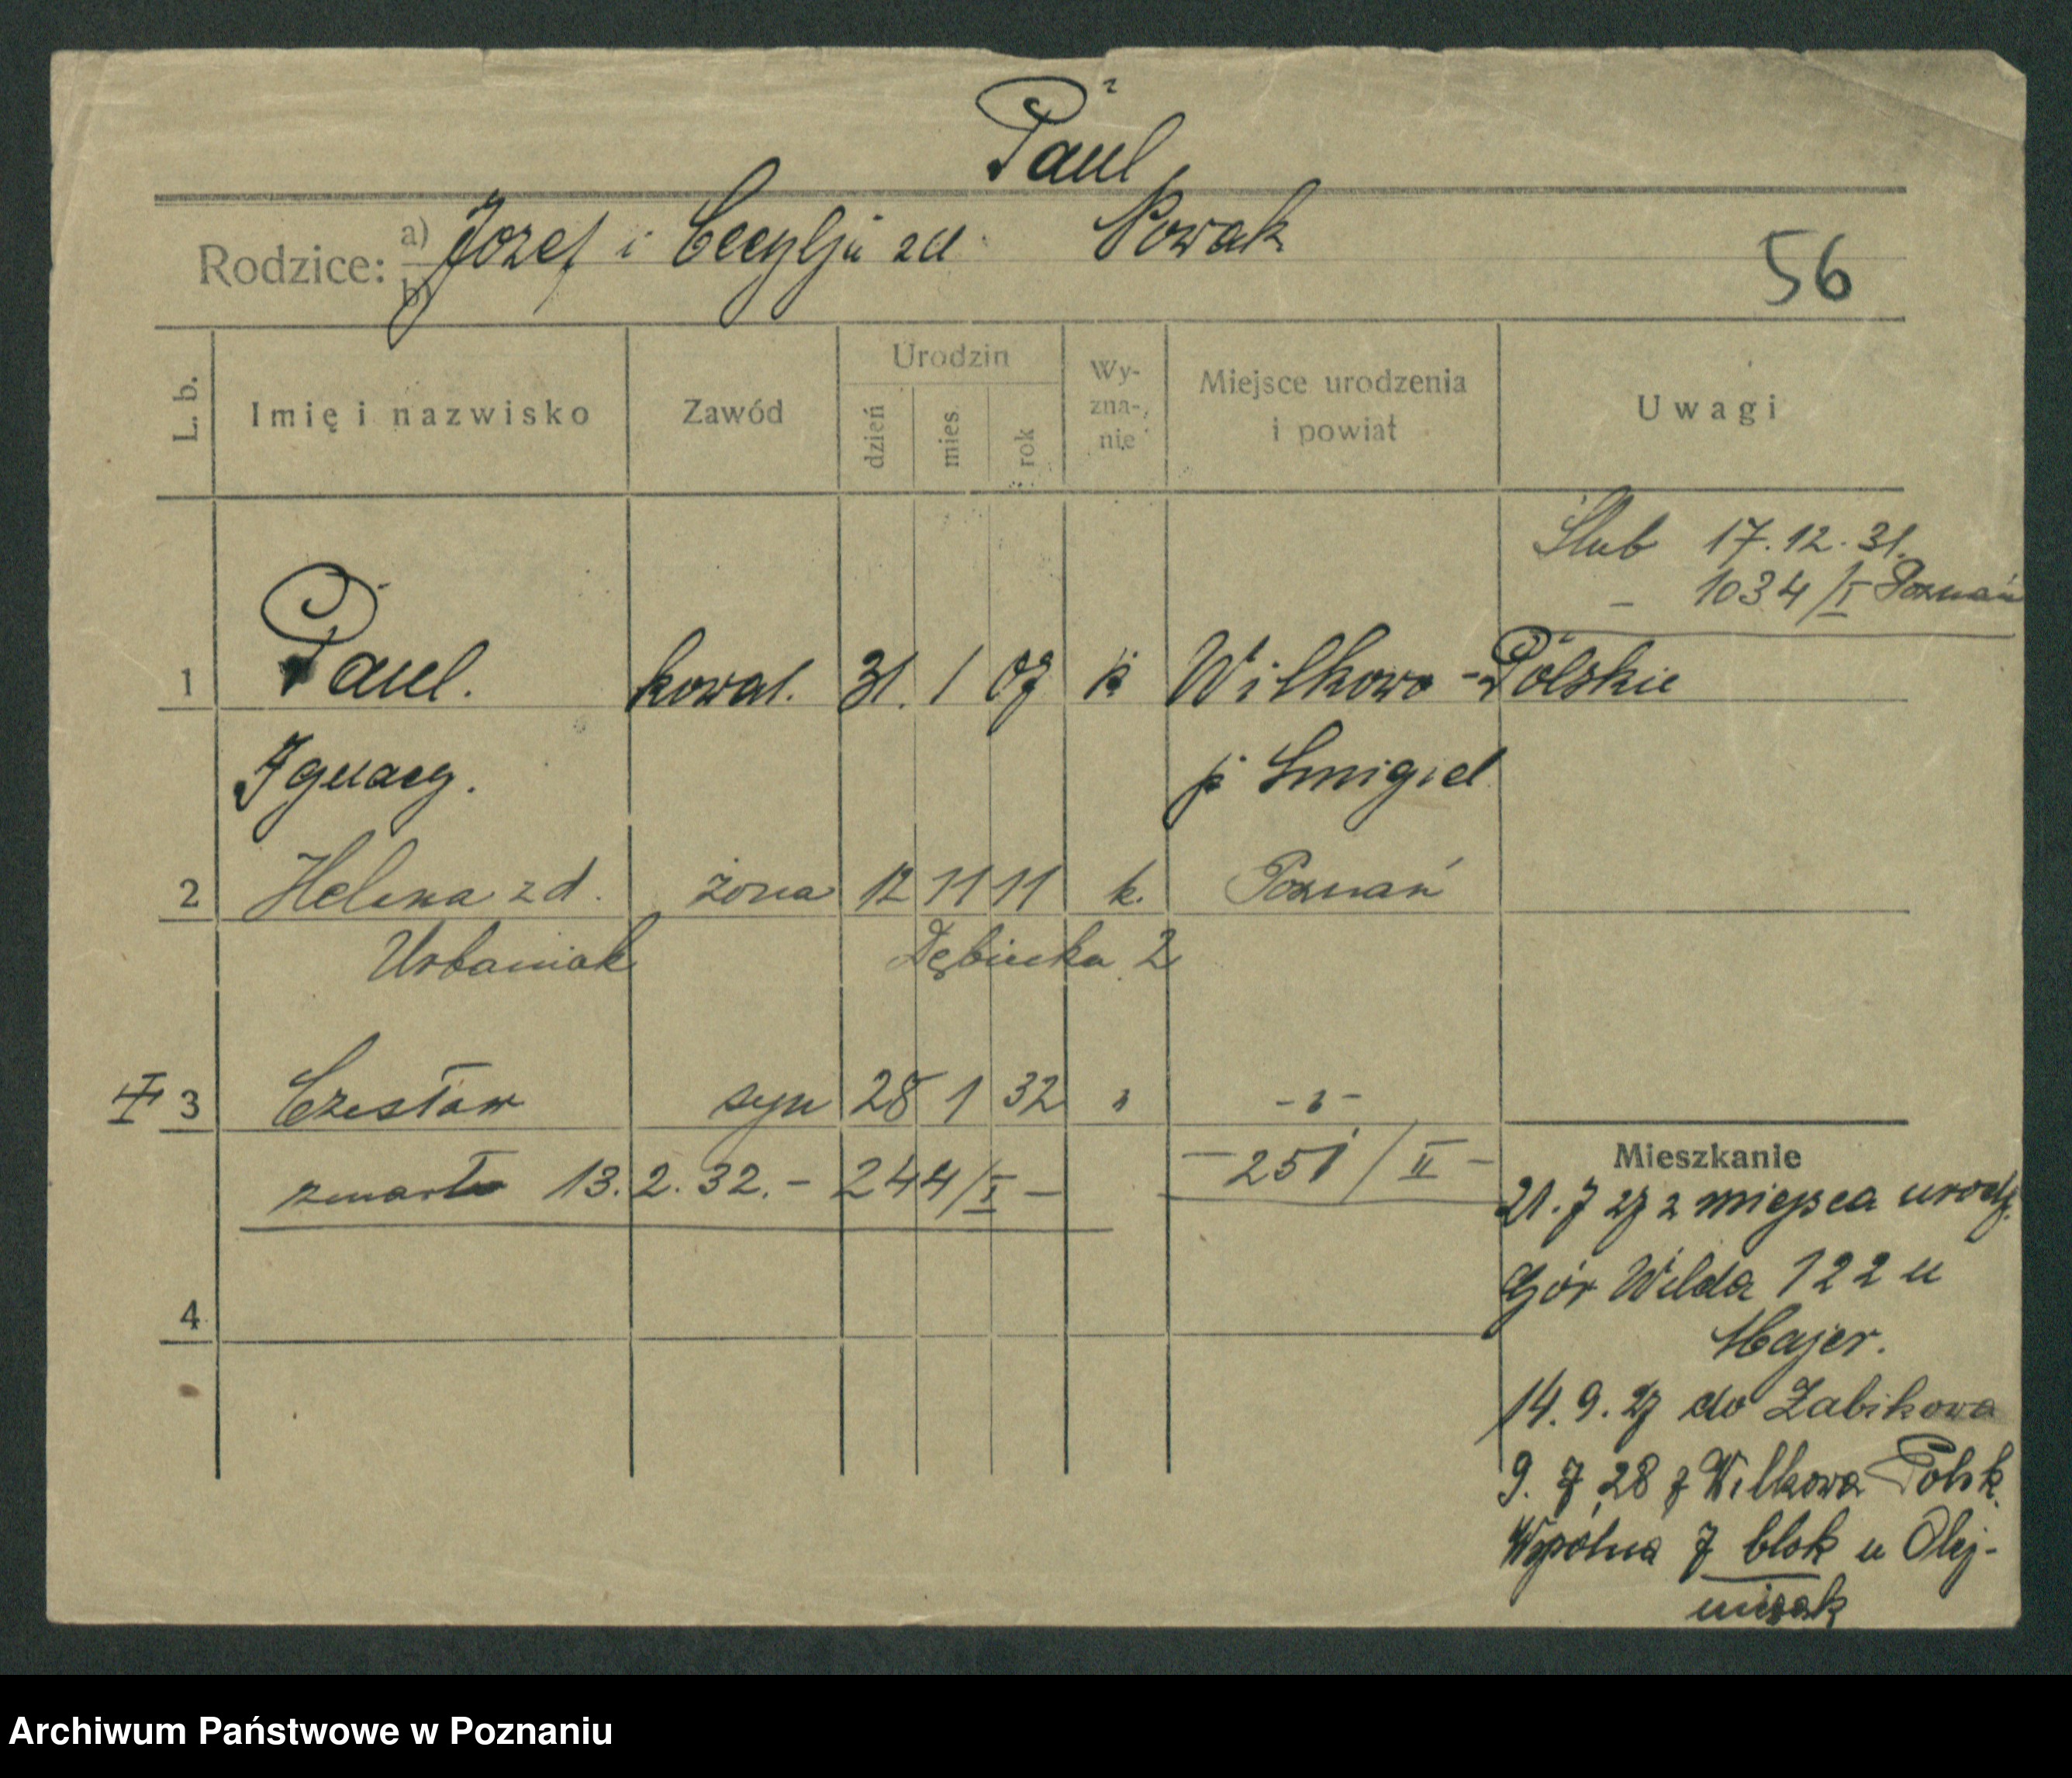 Paul
Rodzice: a) Józef i Cecylja zd. Nowak
b)
56
L. b. Imię i nazwisko Zawód Urodzin dzień mies. rok Wy-zna-nie Miejsce urodzenia i powiat Uwagi
Ślub 17.12.31.
1034/I Poznań
1 Paul. kowal. 31. 1 07 k Wilkowo-Polskie
Ignacy. p. Smigiel
2 Helena zd. żona 12 11 11 k. Poznań
Urbaniak Dębiecka 2
3 Czesław syn 28 1 32 " -"-
zmarł 13.2.32.- 244/I - - 251/II -
Mieszkanie
21.7 27 z miejsca urodz.
Gór Wilda 122 u
Majer.
4
14.9.27 do Żabikowa
9.7.28 z Wilkowa Polsk.
Wspólna 7 blok u Olej-
niczak
Archiwum Państwowe w Poznaniu